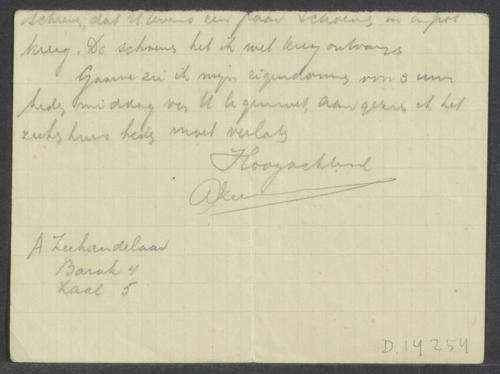 schreven, dat U tevens een paar schoens
kreeg. De schoens het ik wel kreeg ontvangs
Gaarne zie ik mijn eigendommes voor 3 uur
hedes middag van U tegemoet, aangezies ik het
ziekehuis hedes moet verlats
Hoogachtend
AZee
A Zeehandelaar
Barak 4
Zaal 5
D.14254